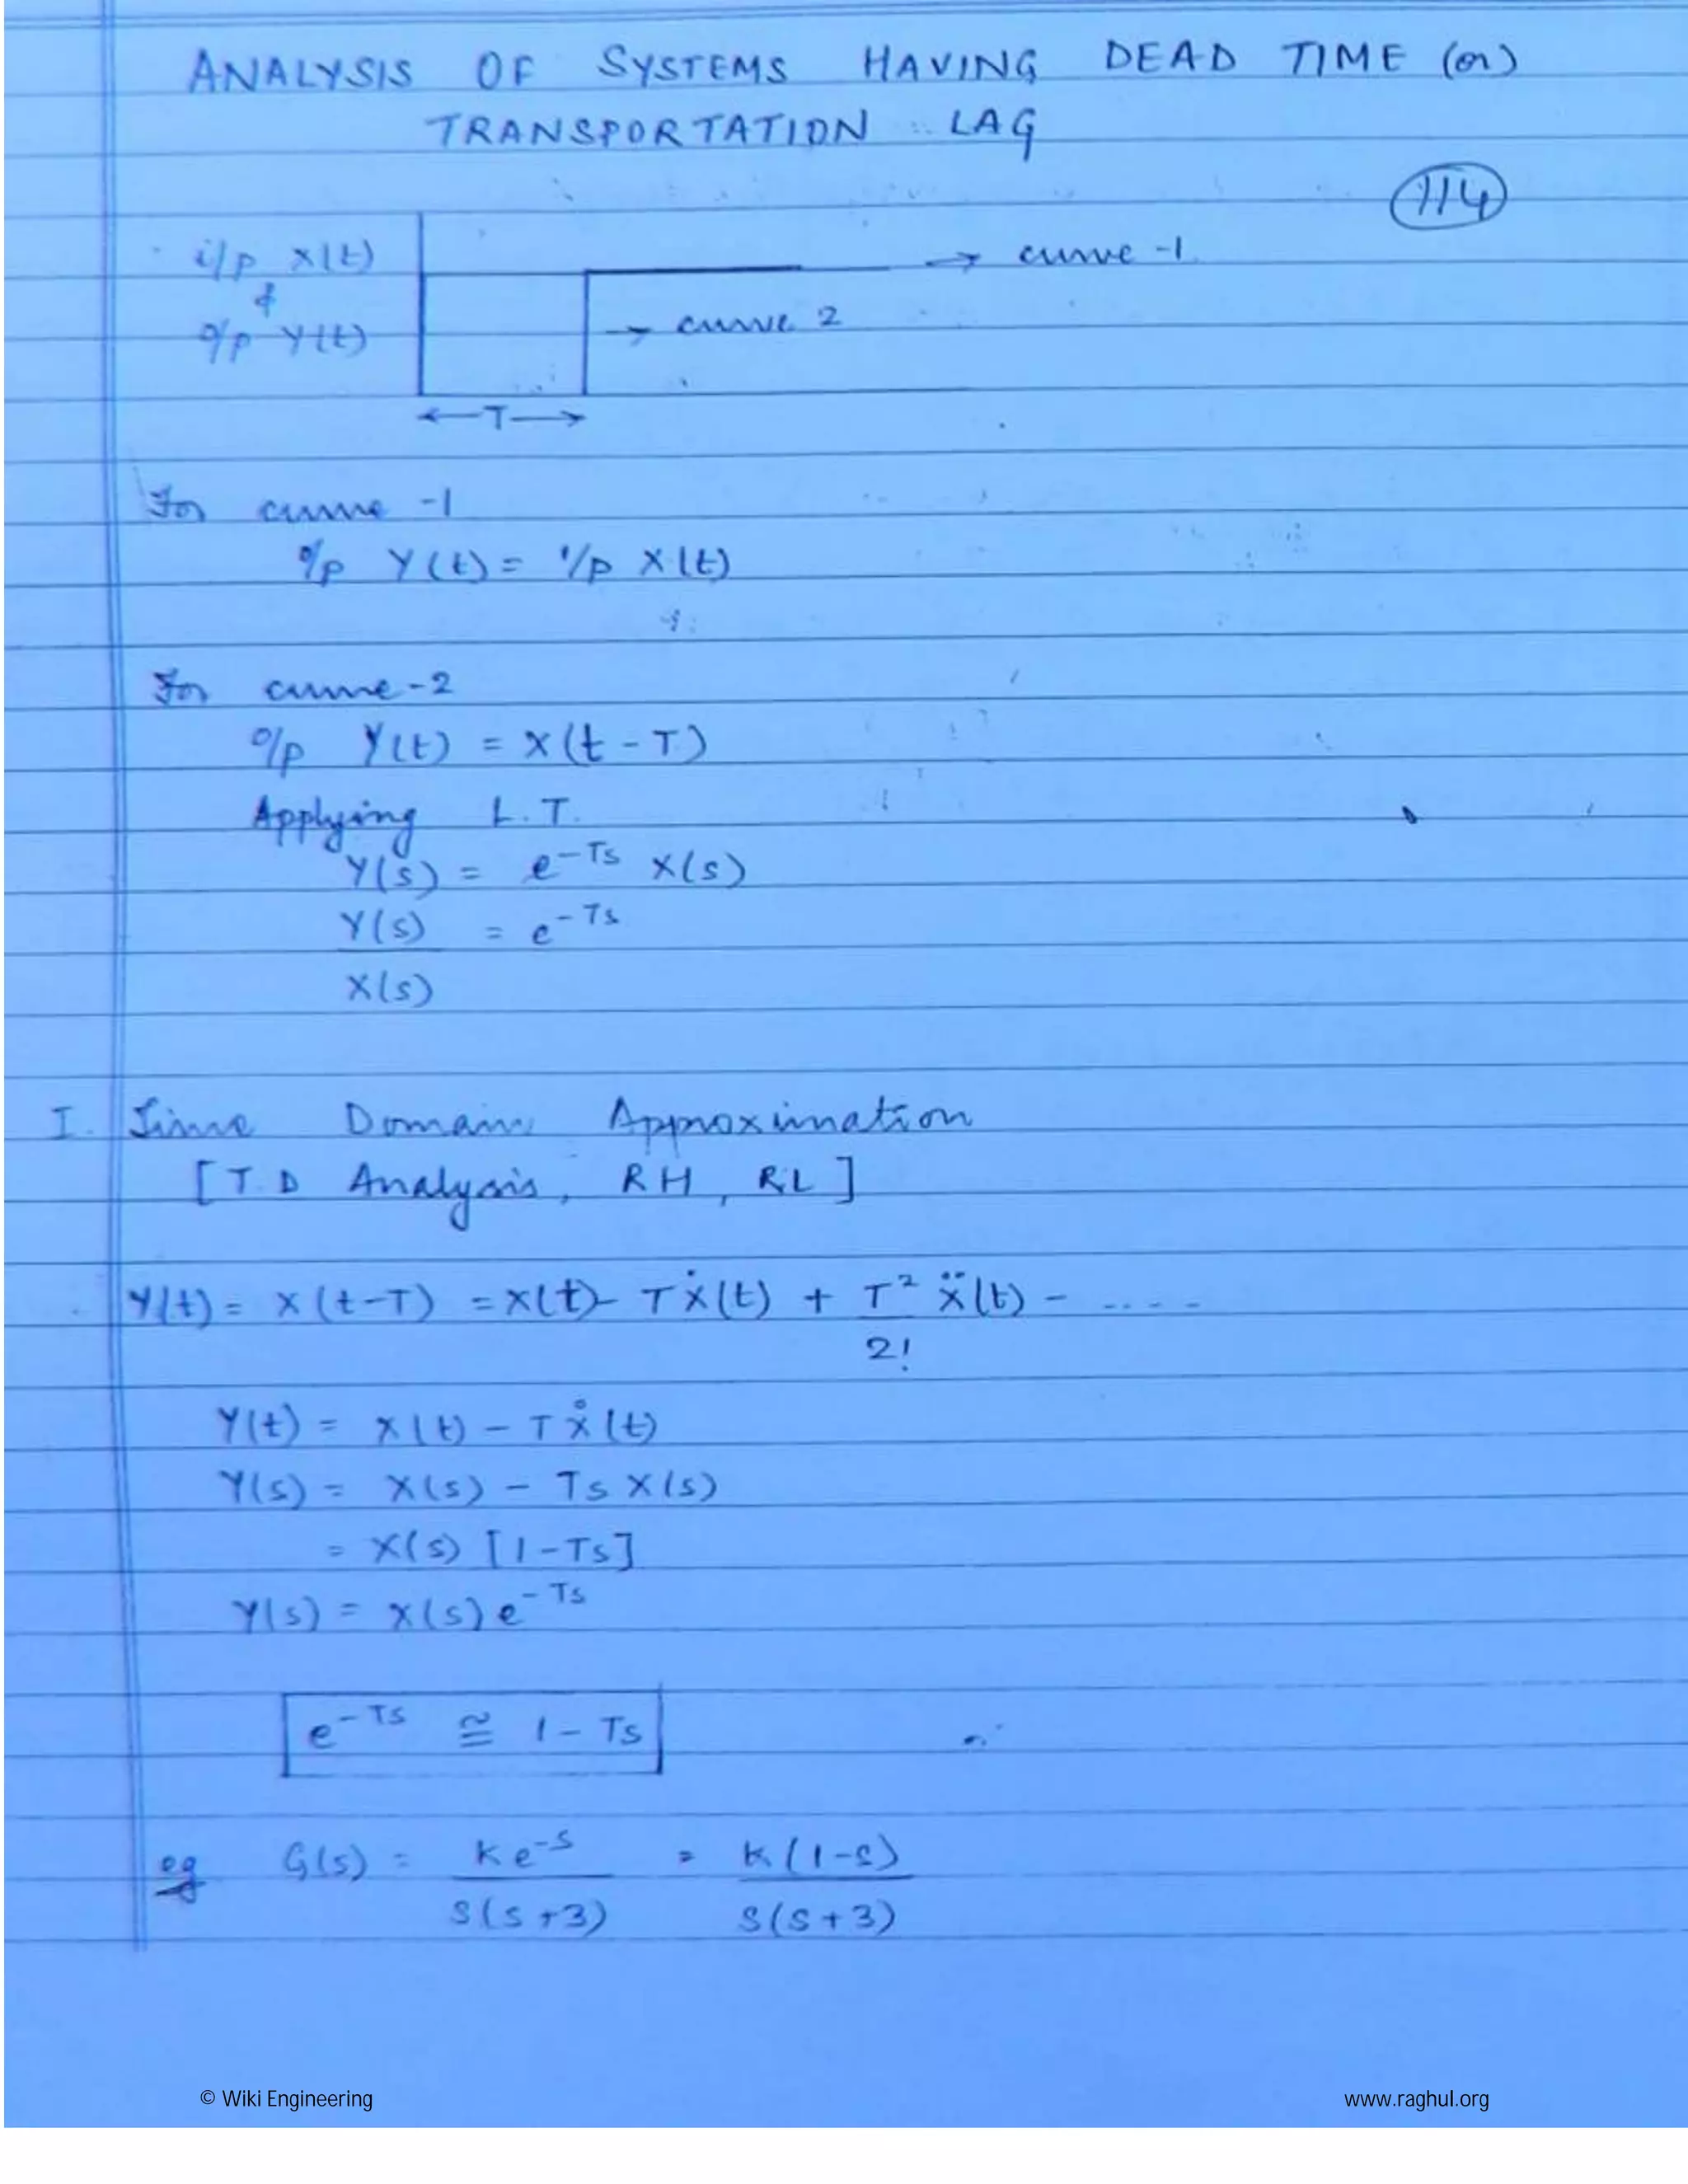 ANALYSIS OF SYSTEMS HAVING DEAD TIME (or)
TRANSPORTATION LAG
114
i/p X(t)
&
o/p Y(t)
→ curve -1
→ curve 2
←T→
For curve -1
o/p Y(t) = i/p X(t)
For curve-2
o/p Y(t) = X(t-T)
Applying L.T.
Y(s) = e^-Ts X(s)
Y(s) = e^-Ts
X(s)
I. Time Domain Approximation
[T.D Analysis, RH, RL]
Y(t) = X(t-T) = X(t) - TẊ(t) + T² Ẍ(t) - ....
2!
Y(t) = X(t) - TẊ(t)
Y(s) = X(s) - Ts X(s)
= X(s) [1-Ts]
Y(s) = X(s) e^-Ts
e^-Ts ≅ 1 - Ts
eg G(s) = K e^-s = K(1-s)
s(s+3) s(s+3)
© Wiki Engineering www.raghul.org